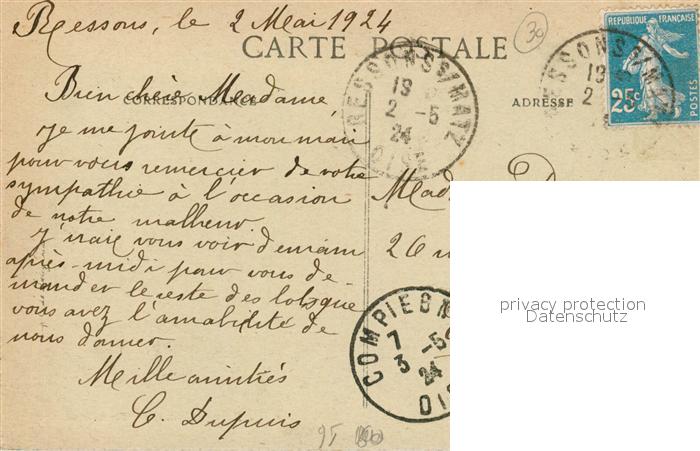 Ressons, le 2 Mai 1924
CARTE POSTALE
30
REPUBLIQUE FRANÇAISE
25c
POSTES
RESSONS S/ MATZ
19
2 -5
24
OISE
RESSONS S/ MATZ
19
2
CORRESPONDANCE
ADRESSE
Bien chère Madame,
Je me joints à mon mari
pour vous remercier de votre
sympathie à l'occasion
de notre malheur.
J'irais vous voir demain
après-midi pour vous de-
mander le reste des
vous avez l'amabilité de
nous donner.
Mille amitiés
C. Dupuis
Mad
26
COMPIEGN
7 -5
3
24
OI
95
privacy protection
Datenschutz